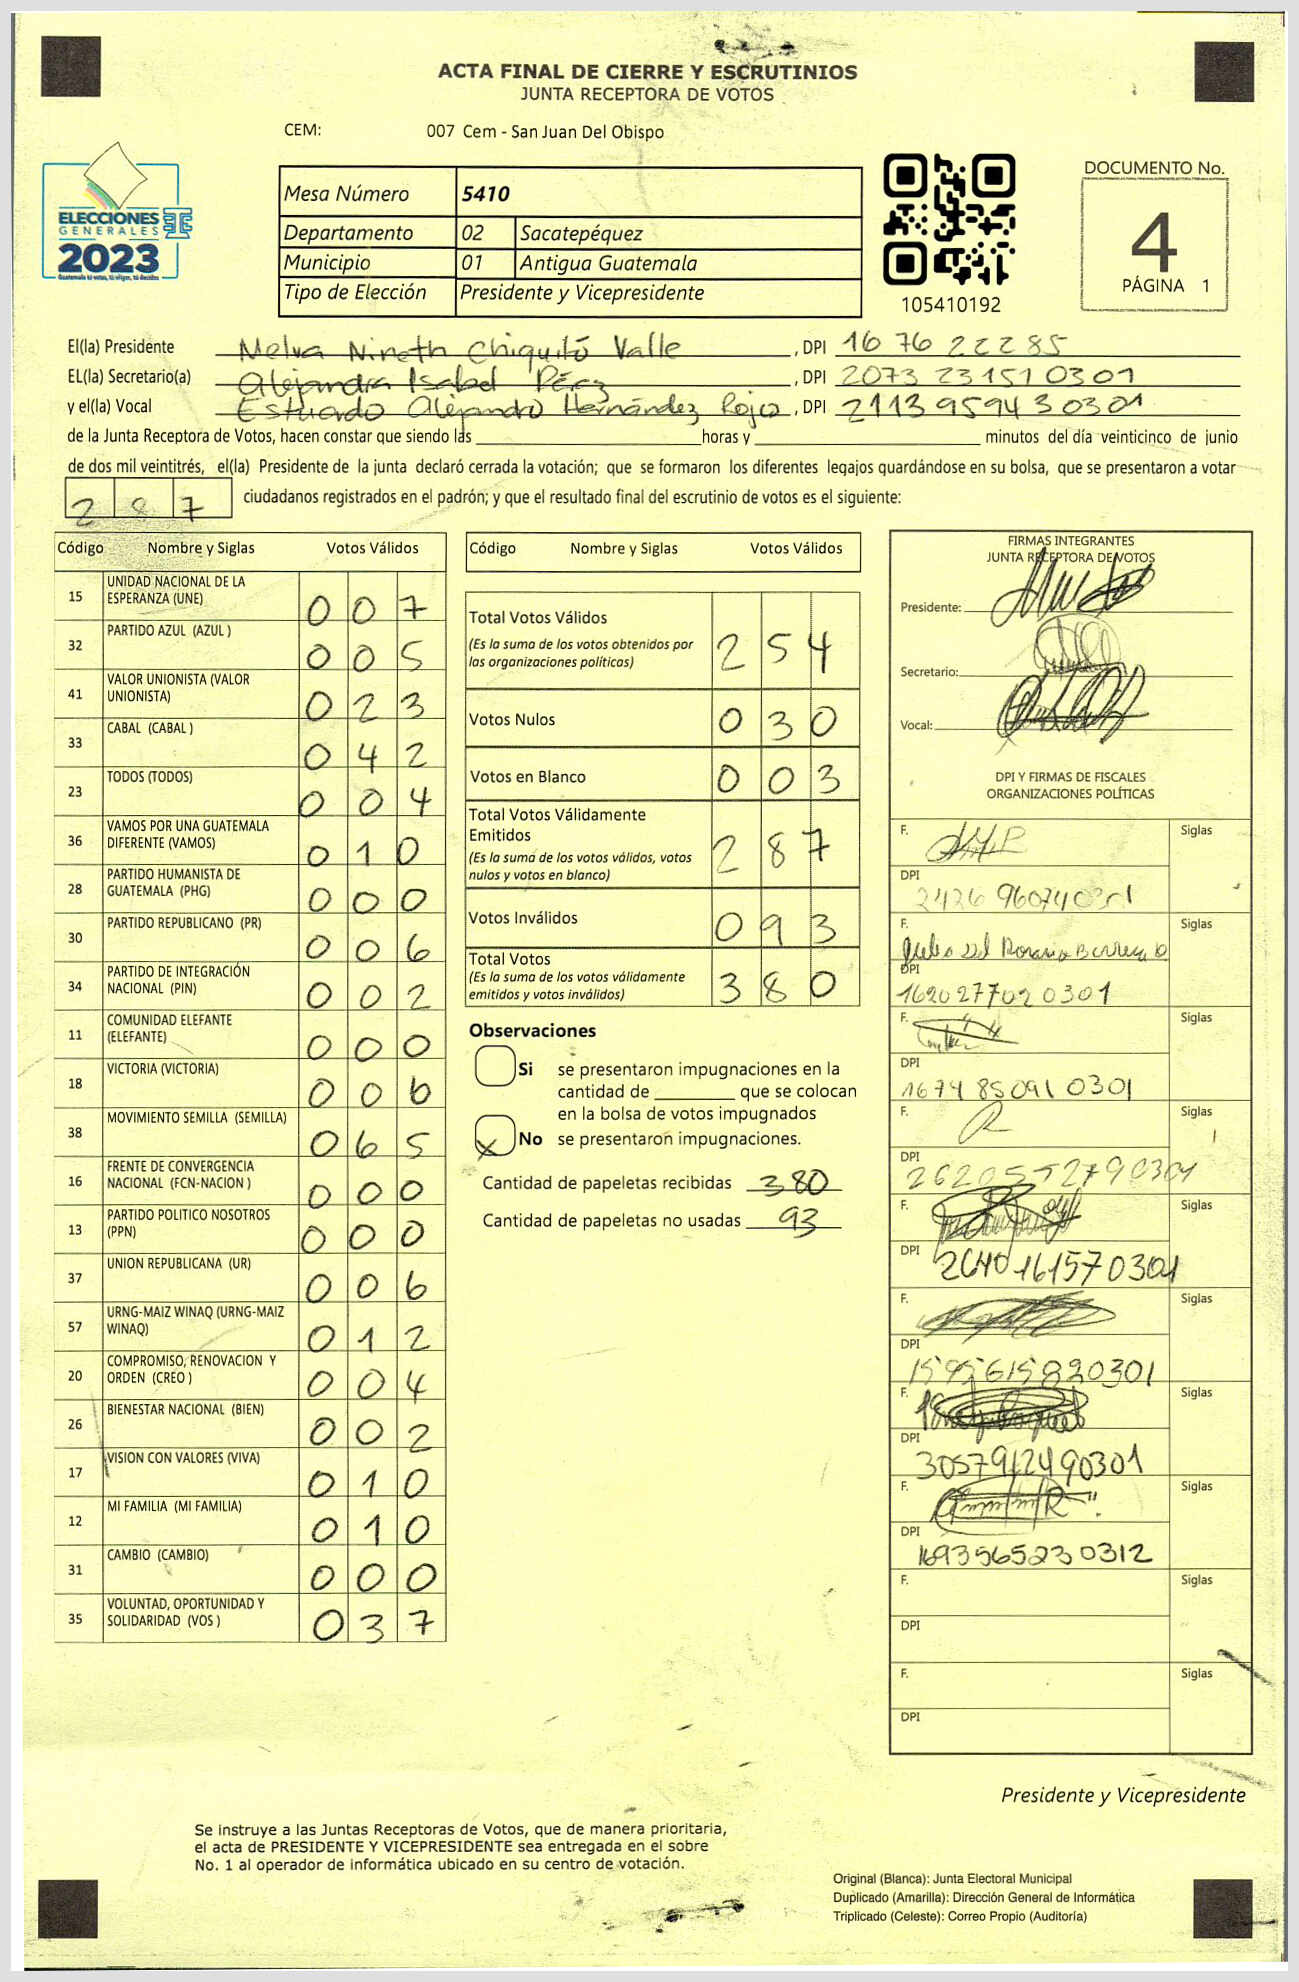 ACTA FINAL DE CIERRE Y ESCRUTINIOS
JUNTA RECEPTORA DE VOTOS
CEM: 007 Cem - San Juan Del Obispo
ELECCIONES
GENERALES
2023
Guatemala tú votas, tú eliges, tú decides
Mesa Número 5410
Departamento 02 Sacatepéquez
Municipio 01 Antigua Guatemala
Tipo de Elección Presidente y Vicepresidente
105410192
DOCUMENTO No.
4
PÁGINA 1
El(la) Presidente Melva Nineth Chiquitó Valle, DPI 16 76 22285
EL(la) Secretario(a) Alejandra Isabel Pérez, DPI 2073 23151 0301
y el(la) Vocal Estuardo Alejandro Hernández Rojo, DPI 2113 95943 0301
de la Junta Receptora de Votos, hacen constar que siendo las horas y minutos del día veinticinco de junio
de dos mil veintitrés, el(la) Presidente de la junta declaró cerrada la votación; que se formaron los diferentes legajos guardándose en su bolsa, que se presentaron a votar
287 ciudadanos registrados en el padrón; y que el resultado final del escrutinio de votos es el siguiente:
Código Nombre y Siglas Votos Válidos
15 UNIDAD NACIONAL DE LA
ESPERANZA (UNE) 007
32 PARTIDO AZUL (AZUL ) 005
41 VALOR UNIONISTA (VALOR
UNIONISTA) 023
33 CABAL (CABAL ) 042
23 TODOS (TODOS) 004
36 VAMOS POR UNA GUATEMALA
DIFERENTE (VAMOS) 010
28 PARTIDO HUMANISTA DE
GUATEMALA (PHG) 000
30 PARTIDO REPUBLICANO (PR) 006
34 PARTIDO DE INTEGRACIÓN
NACIONAL (PIN) 002
11 COMUNIDAD ELEFANTE
(ELEFANTE) 000
18 VICTORIA (VICTORIA) 006
38 MOVIMIENTO SEMILLA (SEMILLA) 065
16 FRENTE DE CONVERGENCIA
NACIONAL (FCN-NACION ) 000
13 PARTIDO POLITICO NOSOTROS
(PPN) 000
37 UNION REPUBLICANA (UR) 006
57 URNG-MAIZ WINAQ (URNG-MAIZ
WINAQ) 012
20 COMPROMISO, RENOVACION Y
ORDEN (CREO ) 004
26 BIENESTAR NACIONAL (BIEN) 002
17 VISION CON VALORES (VIVA) 010
12 MI FAMILIA (MI FAMILIA) 010
31 CAMBIO (CAMBIO) 000
35 VOLUNTAD, OPORTUNIDAD Y
SOLIDARIDAD (VOS ) 037
Código Nombre y Siglas Votos Válidos
Total Votos Válidos
(Es la suma de los votos obtenidos por
las organizaciones políticas) 254
Votos Nulos 030
Votos en Blanco 003
Total Votos Válidamente
Emitidos
(Es la suma de los votos válidos, votos
nulos y votos en blanco) 287
Votos Inválidos 093
Total Votos
(Es la suma de los votos válidamente
emitidos y votos inválidos) 380
Observaciones
Si se presentaron impugnaciones en la
cantidad de que se colocan
en la bolsa de votos impugnados
X No se presentaron impugnaciones.
Cantidad de papeletas recibidas 380
Cantidad de papeletas no usadas 93
FIRMAS INTEGRANTES
JUNTA RECEPTORA DE VOTOS
Presidente:
Secretario:
Vocal:
DPI Y FIRMAS DE FISCALES
ORGANIZACIONES POLÍTICAS
F. Siglas
DPI
F. Siglas
DPI
162027702 0301
F. Siglas
DPI
1674 85091 0301
F. Siglas
DPI
F. Siglas
DPI 2640 161570301
F. Siglas
DPI
1595615820301
F. Siglas
DPI
3057912490301
F. Siglas
DPI
1693565230312
F. Siglas
DPI
F. Siglas
DPI
Presidente y Vicepresidente
Se instruye a las Juntas Receptoras de Votos, que de manera prioritaria,
el acta de PRESIDENTE Y VICEPRESIDENTE sea entregada en el sobre
No. 1 al operador de informática ubicado en su centro de votación.
Original (Blanca): Junta Electoral Municipal
Duplicado (Amarilla): Dirección General de Informática
Triplicado (Celeste): Correo Propio (Auditoría)